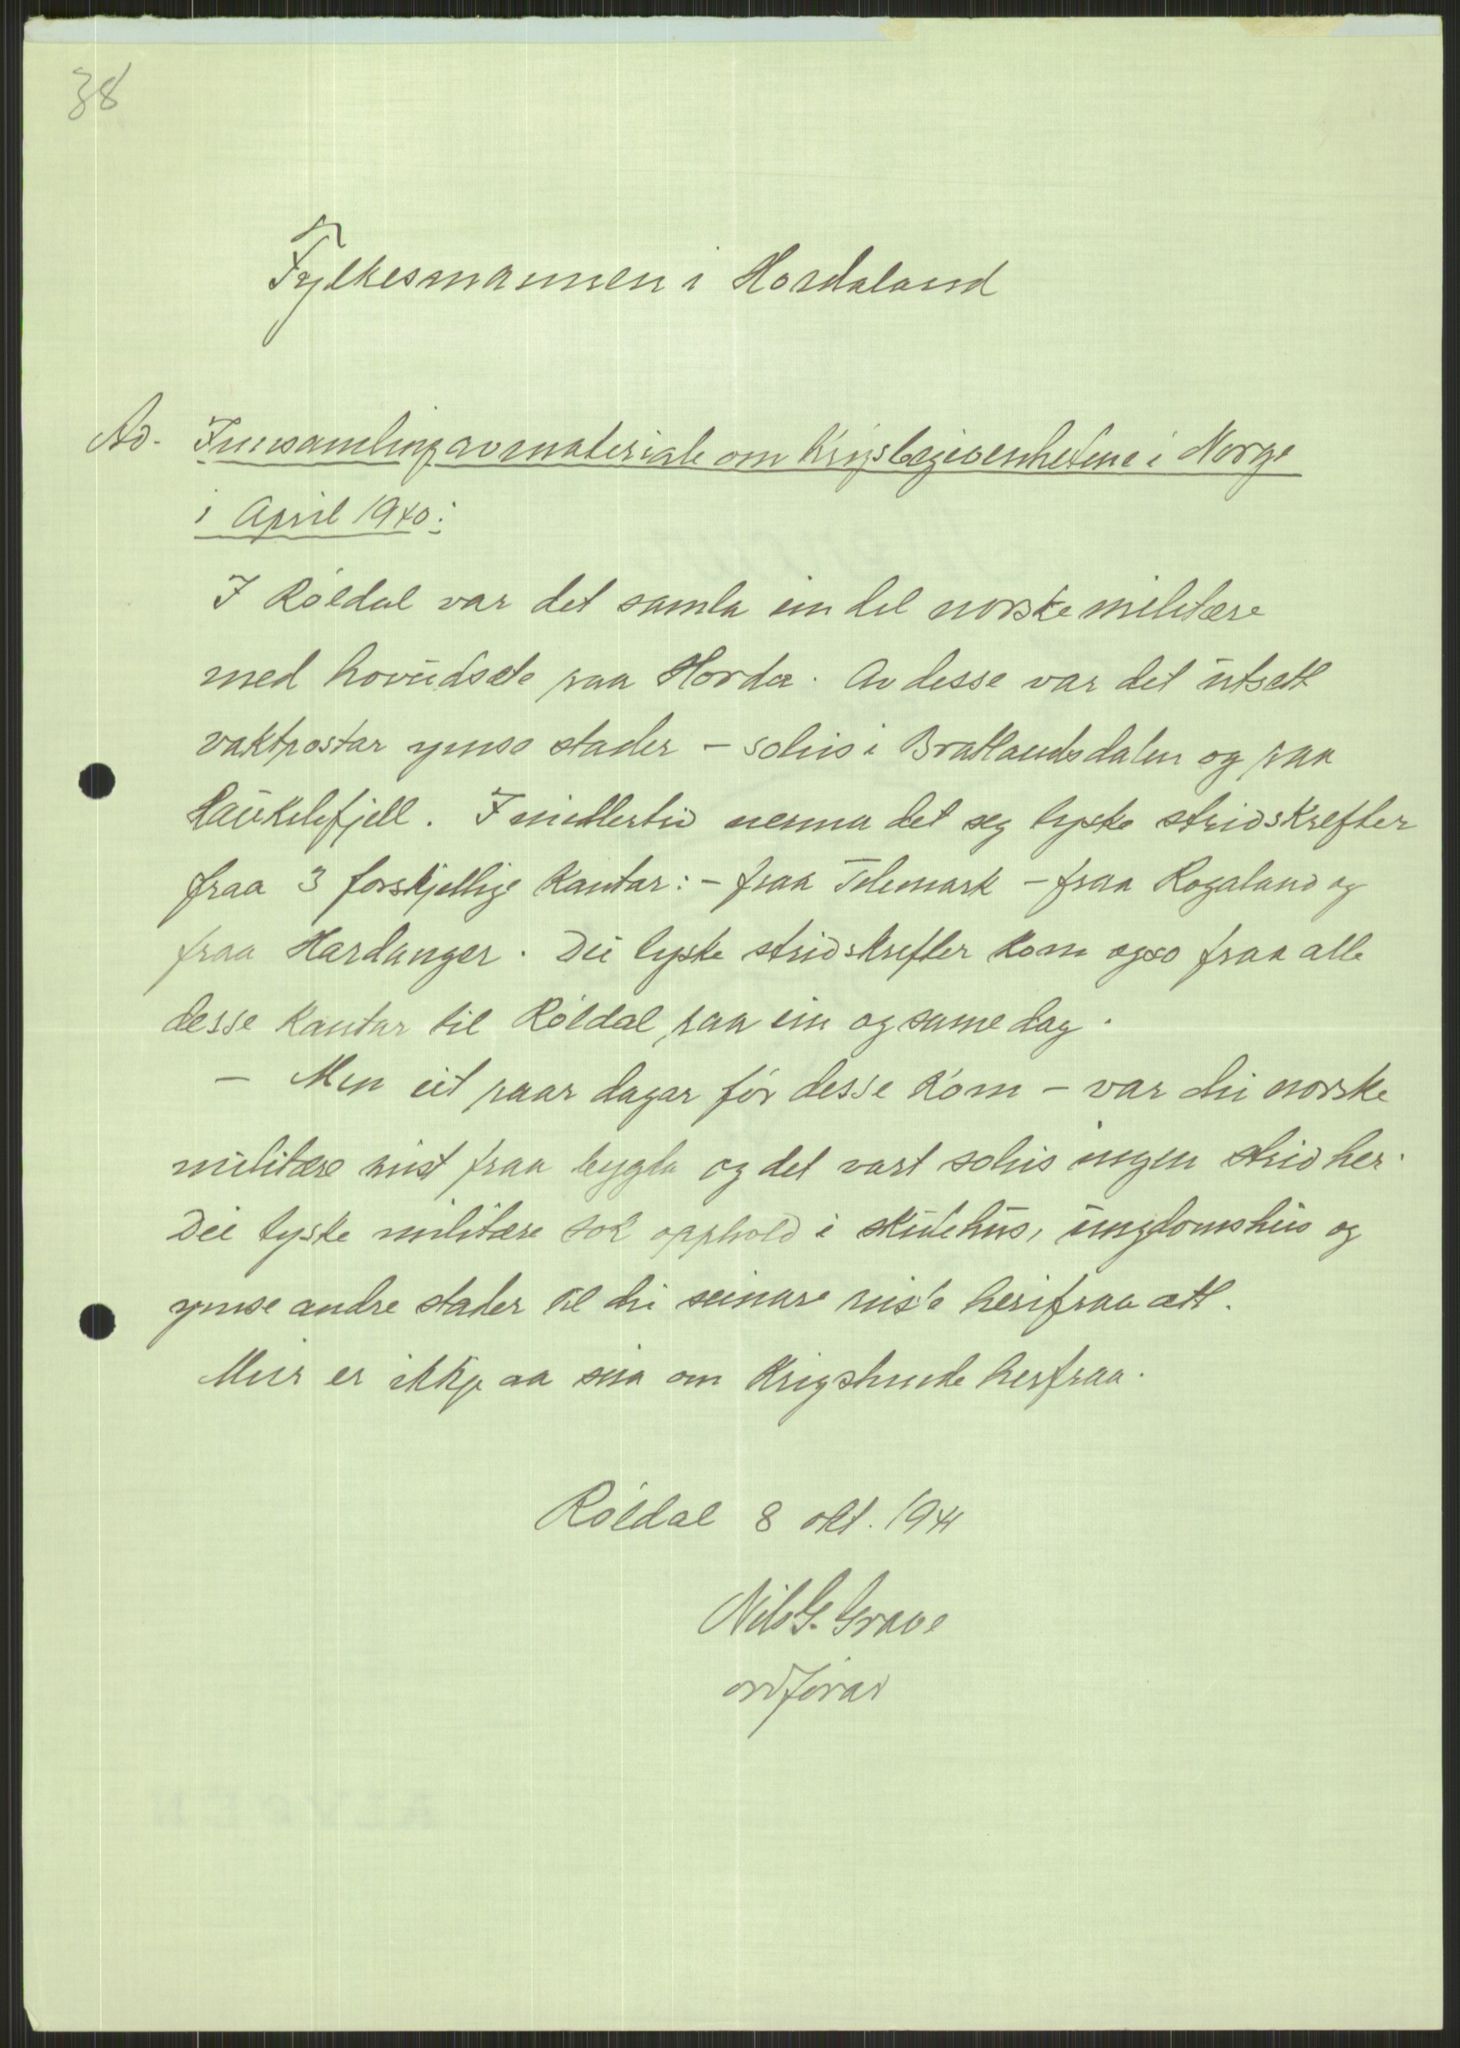 38
Fylkesmannen i Hordaland
Ad. Innsamling av materiale om krigsbegivenhetene i Norge
i April 1940:
I Røldal var det samla ein del norske militære
med hovudsete paa Horda. Av desse var det utsett
vaktpostar ymse stader - soleis i Bratlandsdalen og paa
Haukelifjell. Imidlertid nerma det seg tyske stridskrefter
fraa 3 forskjellige kantar: - fraa Telemark - fraa Rogaland og
fraa Hardanger. Dei tyske stridskrefter kom ogso fraa alle
desse kantar til Røldal paa ein og same dag.
- Men eit paar dagar før desse kom - var dei norske
militære reist fraa bygda og det vart soleis ingen strid her.
Dei tyske militære tok opphold i skulehus, ungdomshus og
ymse andre stader til dei seinare reiste herifraa att.
Meir er ikkje aa seia om krigshende herfraa.
Røldal 8 okt. 1941
Nils G. Grave
ordførar